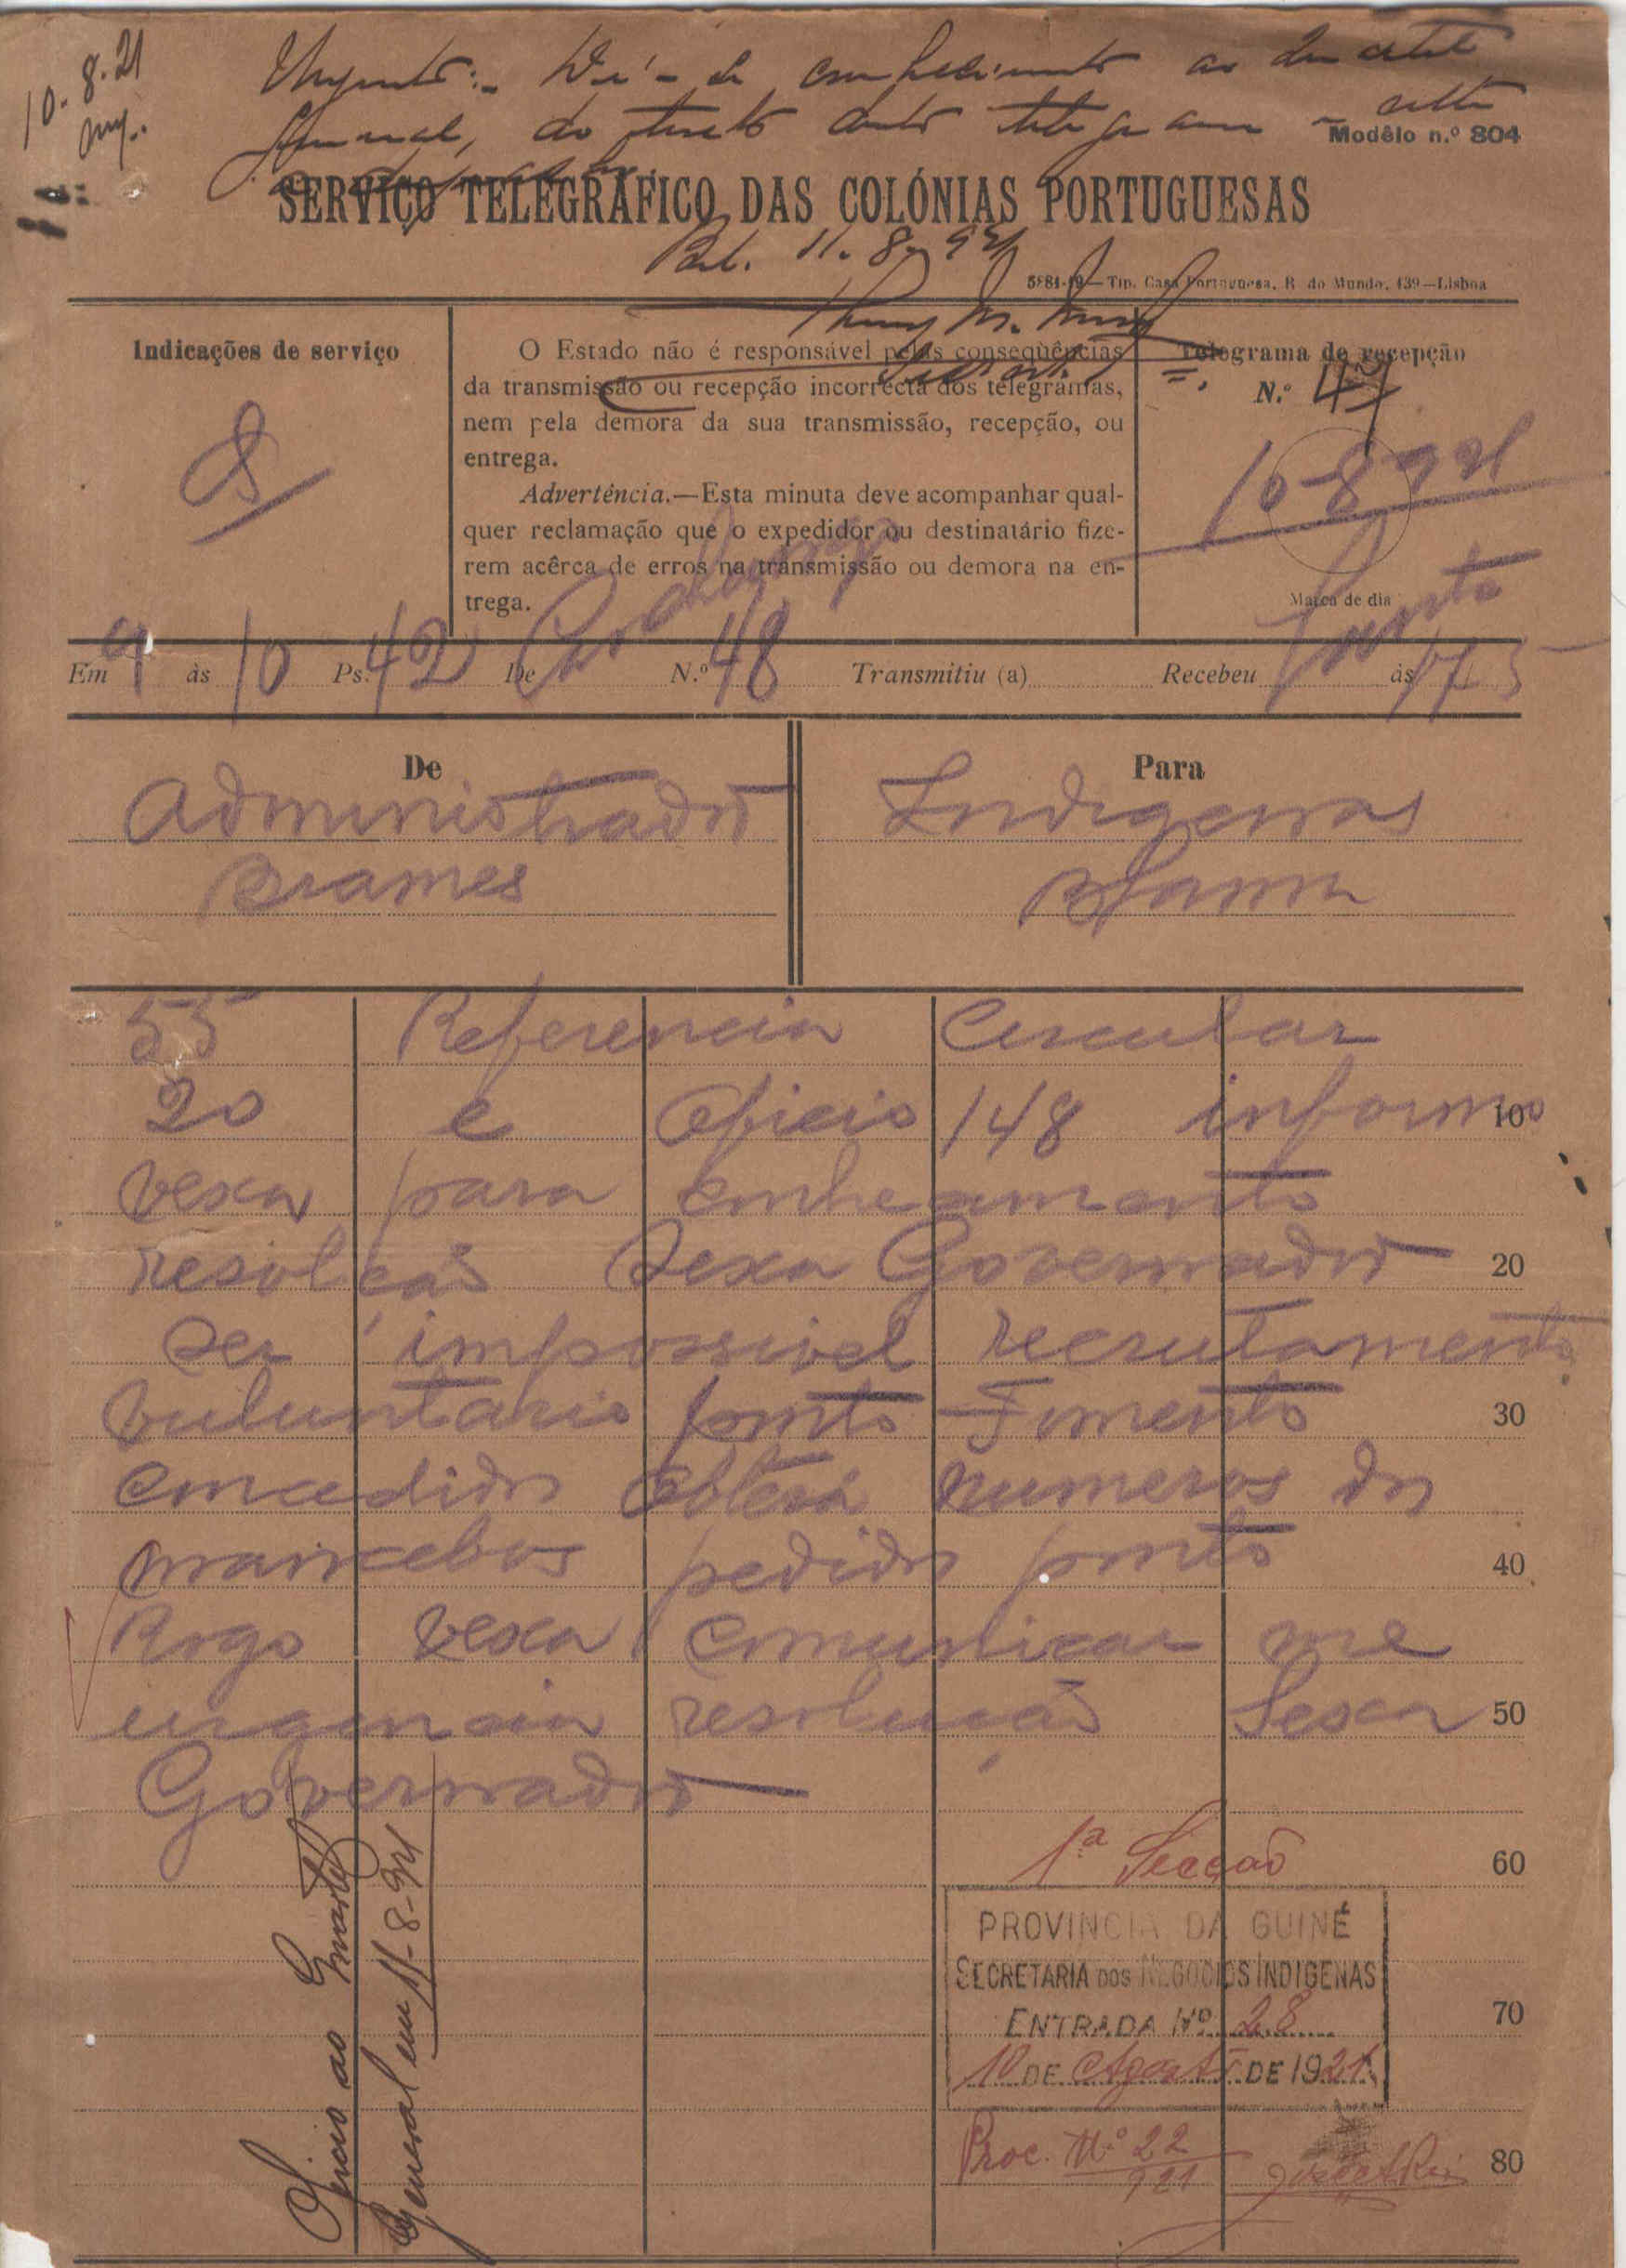 10.8.21
Urgente:- Dê-se conhecimento ao
do texto deste telegrama
Modêlo n.º 804
SERVIÇO TELEGRÁFICO DAS COLÓNIAS PORTUGUESAS
Bol. 11-8-921
5884-19—Tip. Casa Portuguesa, R. do Mundo, 139—Lisboa
Indicações de serviço
S
O Estado não é responsável pelas conseqüências
da transmissão ou recepção incorrecta dos telegramas,
nem pela demora da sua transmissão, recepção, ou
entrega.
Advertência.—Esta minuta deve acompanhar qual-
quer reclamação que o expedidor ou destinatário fize-
rem acêrca de erros na transmissão ou demora na en-
trega.
Telegrama de recepção
N.º 47
10-8-921
Marca de dia
Em 9 às 10 Ps. 42 De N.º 48 Transmitiu (a) Recebeu às
De
Administrador
Brames
Para
Indigenas
Bolama
55 Referencia Circular
20 e oficio 148 informo 10
vexa para conhecimento
resolução Sexa Governador 20
ser impossivel recrutamento
voluntario ponto 30
concedido obterá numeros dos
mancebos pedidos ponto 40
Rogo vexa comunicar me
urgencia resolução Sexa 50
Governador
1ª Secção
60
PROVINCIA DA GUINÉ
SECRETARIA DOS NEGOCIOS INDIGENAS
ENTRADA Nº 28
70
10 DE Agosto DE 1921
Proc. Nº 22
921
80
Oficio ao Quartel
General em 11-8-921